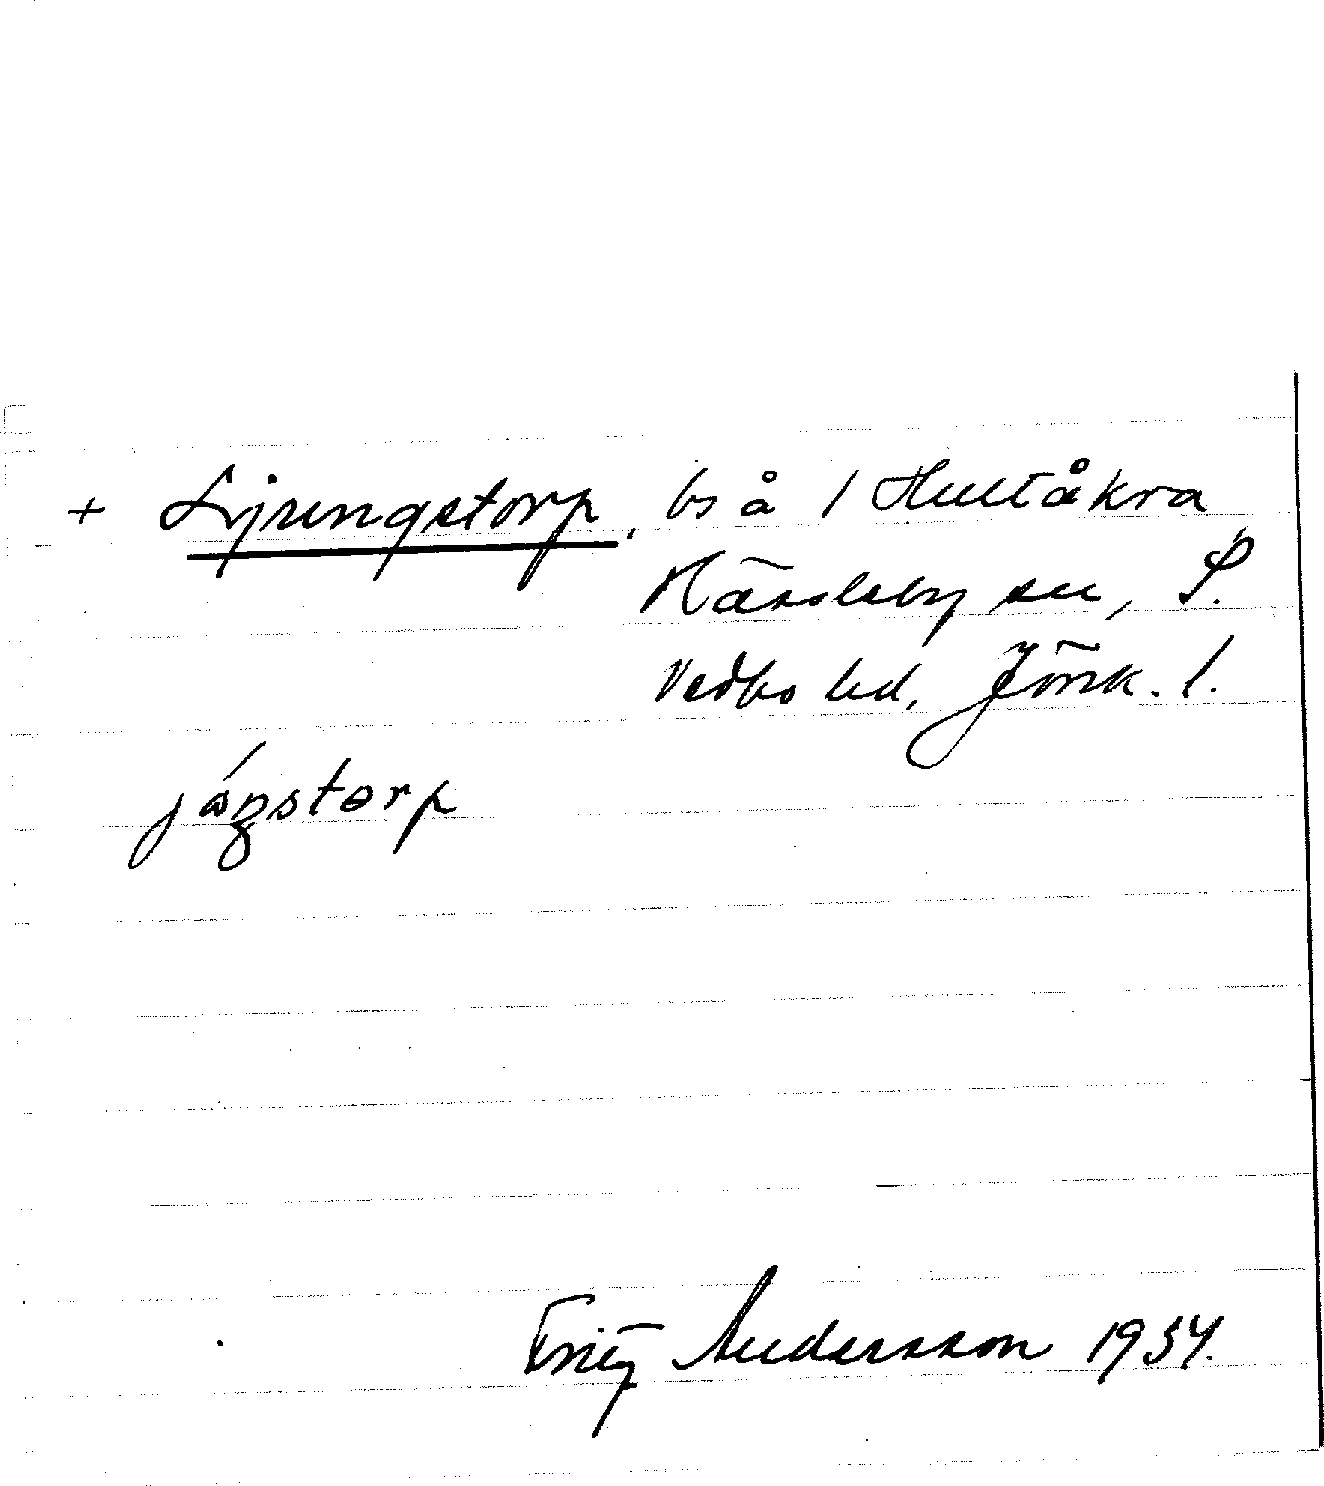 + Ljungstorp, bs å 1 Hultåkra
Hässleby sn, S.
Vedbo hd, Jönk. l.
jógstorp
Fritz Andersson 1934.